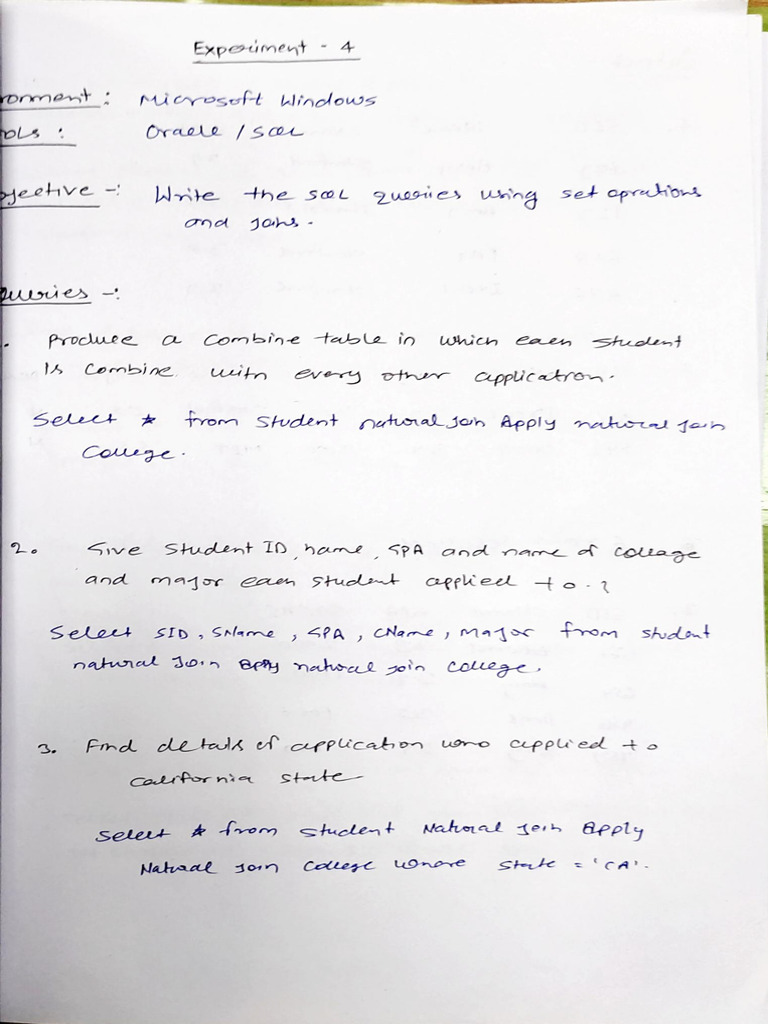 Experiment - 4
ronment : Microsoft Windows
ols : Oracle / SQL
jective -: Write the SQL queries using set oprations
and Joins.
Queries -:
. Produce a combine table in which each student
is combine with every other application.
Select * from Student natural join Apply natural join
College.
2. Give Student ID, name, GPA and name of colleage
and major each student applied to. ?
Select SID, SName, GPA, CName, Major from student
natural Join Apply natural join college.
3. Find details of application who applied to
California state
Select * from Student Natural Join Apply
Natural Join College where state = 'CA'.